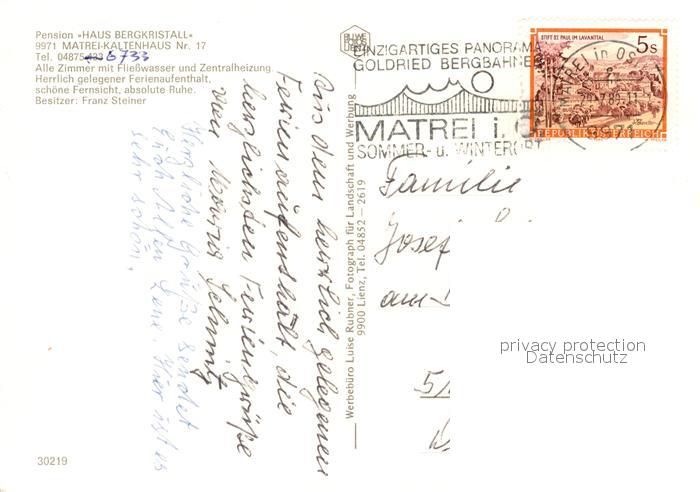 Pension »HAUS BERGKRISTALL«
9971 MATREI-KALTENHAUS Nr. 17
Tel. 04875-6733
Alle Zimmer mit Fließwasser und Zentralheizung.
Herrlich gelegener Ferienaufenthalt,
schöne Fernsicht, absolute Ruhe.
Besitzer: Franz Steiner
Aus dem herrlich gelegenen
Ferienaufenthalt, die
herzlichsten Feriengrüße
von Maria Schmitz
Herzliche Grüße sendet
Euch Allen Lene. Hier ist es
sehr schön.
30219
Werbebüro Luise Rubner, Fotograf für Landschaft und Werbung
9900 Lienz, Tel. 04852 – 2619
EINZIGARTIGES PANORAMA
GOLDRIED BERGBAHNEN
MATREI i. O
SOMMER- u. WINTERORT
STIFT ST. PAUL IM LAVANTTAL
5s
REPUBLIK ÖSTERREICH
MATREI in OS
Familie
Josef
am
5/
privacy protection
Datenschutz